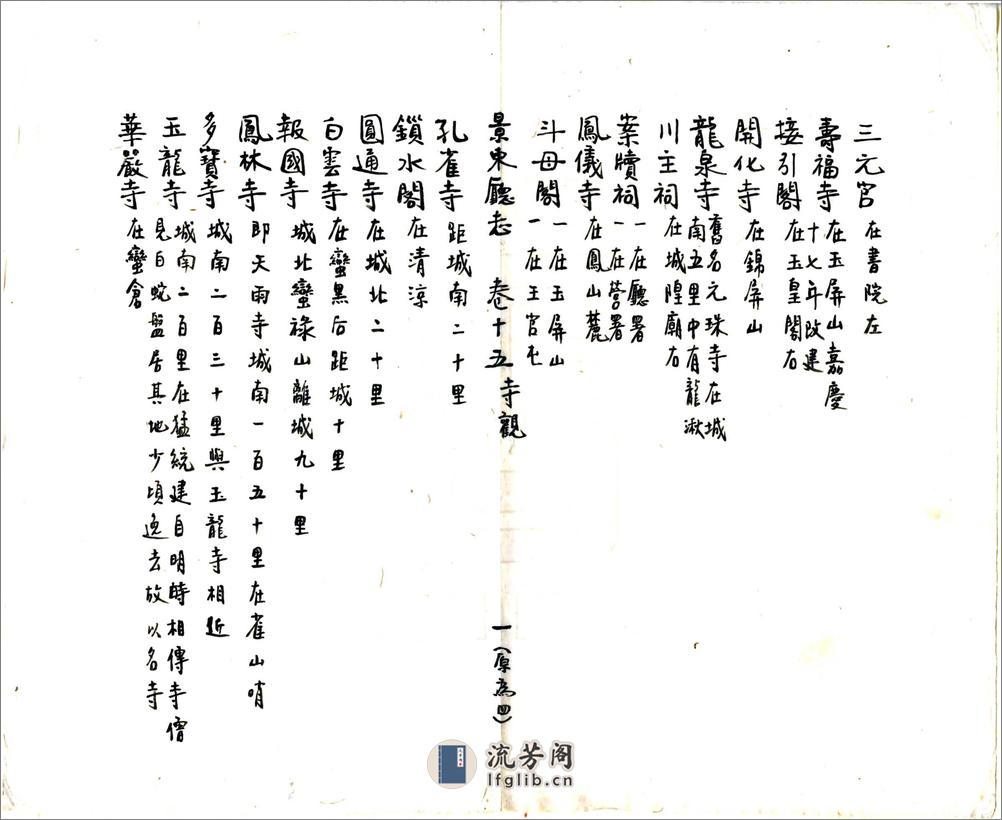 三元宮 在書院左
壽福寺 在玉屏山嘉慶
十七年改建
接引閣 在玉皇閣右
開化寺 在錦屏山
龍泉寺 舊名元珠寺在城
南五里中有龍湫
川主祠 在城隍廟右
案牘祠 一在廳署
一在營署
鳳儀寺 在鳳山麓
斗母閣 一在玉屏山
一在王官屯
景東廳志 卷十五 寺觀 一（原為四）
孔雀寺 距城南二十里
鎖水閣 在清涼
圓通寺 在城北二十里
白雲寺 在蠻黑后距城十里
報國寺 城北蠻祿山離城九十里
鳳林寺 即天雨寺城南一百五十里在雀山哨
多寶寺 城南二百三十里與玉龍寺相近
玉龍寺 城南二百里在猛統建自明時相傳寺僧
見白蛇盤居其地少頃逸去故以名寺
華嚴寺 在蠻倉
流芳阁
lfglib.cn